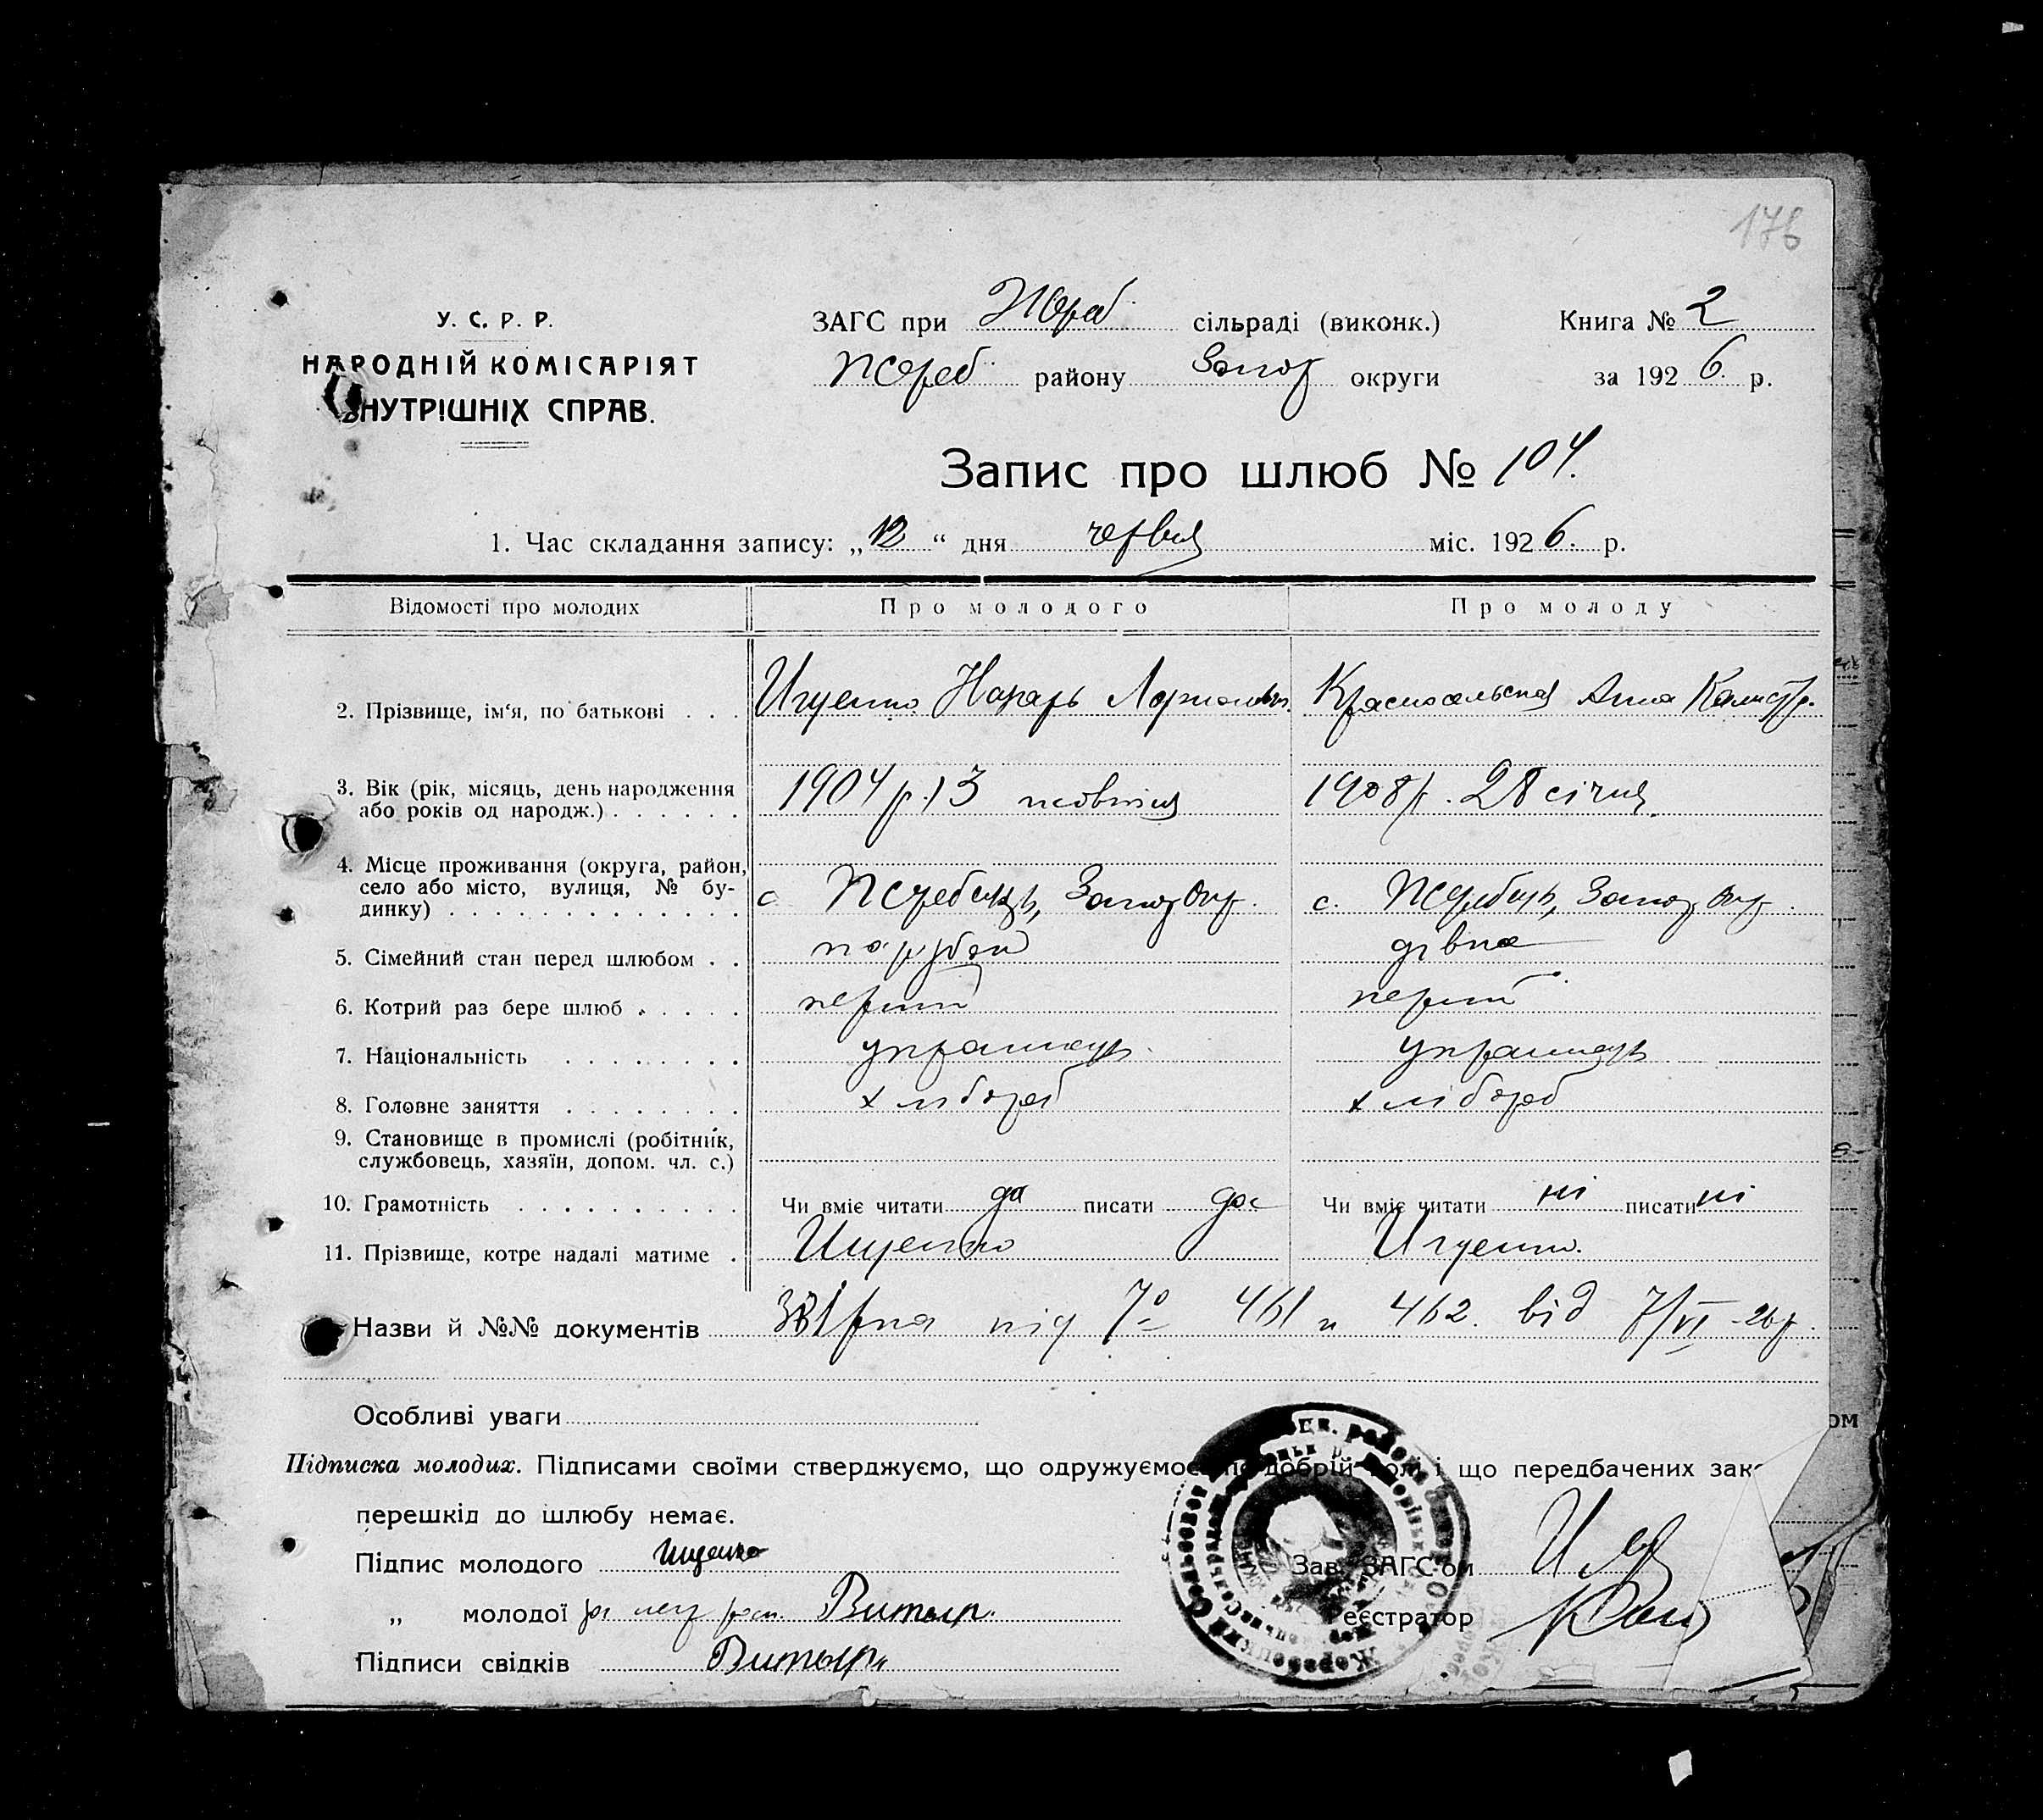 176
У. С. Р. Р.
НАРОДНІЙ КОМІСАРІЯТ
ВНУТРІШНІХ СПРАВ.
ЗАГС при Жереб сільраді (виконк.)
Жереб району Запор округи
Книга № 2
за 1926 р.
Запис про шлюб № 104.
1. Час складання запису: „12“ дня червня міс. 1926. р.
Відомості про молодих Про молодого Про молоду
2. Прізвище, ім'я, по батькові . . . Ищенко Назарь Красносельская Анна Калистр.
3. Вік (рік, місяць, день народження
або років од народж.) . . . . . . 1904 р. 13 жовтня 1908 р. 28 січня.
4. Місце проживання (округа, район,
село або місто, вулиця, № бу-
динку) . . . . . . . . . . . . . с Жеребець, Запор Окр. с. Жеребець, Запор Окр.
5. Сімейний стан перед шлюбом . . парубок дівка
6. Котрий раз бере шлюб . . . . . перший перший
7. Національність . . . . . . . . українець українець
8. Головне заняття . . . . . . . . хлібороб хлібороб
9. Становище в промислі (робітник,
службовець, хазяїн, допом. чл. с.)
10. Грамотність . . . . . . . . . . Чи вміє читати да писати да Чи вміє читати ні писати ні
11. Прізвище, котре надалі матиме . Ищенко Ищенко.
Назви й №№ документів 461 и 462. від 7/VI-26р.
Особливі уваги
Підписка молодих. Підписами своїми стверджуємо, що одружуємос по добрій волі і що передбачених зак
перешкід до шлюбу немає.
Підпис молодого Ищенко
„ молодої
Підписи свідків
Зав. ЗАГС'ом
Реєстратор